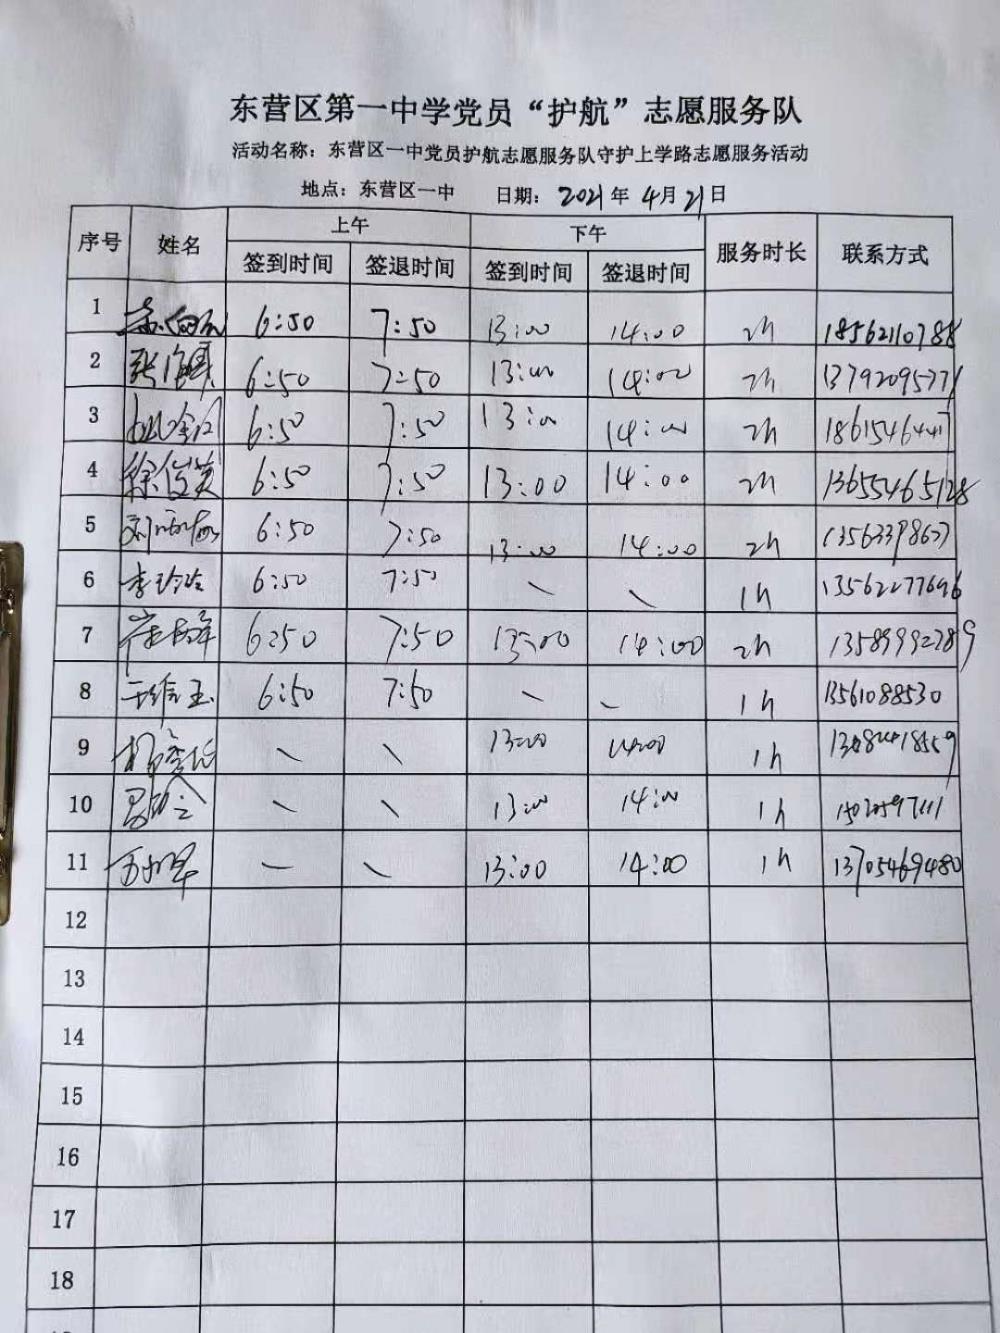 东营区第一中学党员“护航”志愿服务队
活动名称：东营区一中党员护航志愿服务队守护上学路志愿服务活动
地点：东营区一中 日期：2021年4月21日
序号 姓名 上午 下午 服务时长 联系方式
签到时间 签退时间 签到时间 签退时间
1 6:50 7:50 13:00 14:00 2h 18562110788
2 6:50 7:50 13:00 14:00 2h
3 6:50 7:50 13:00 14:00 2h
4 徐俊英 6:50 7:50 13:00 14:00 2h 13655465128
5 6:50 7:50 13:00 14:00 2h
6 李玲玲 6:50 7:50 \ \ 1h 13562277696
7 6:50 7:50 13:00 14:00 2h 13589992789
8 6:50 7:50 \ \ 1h 13561088530
9 \ \ 13:00 14:00 1h
10 \ \ 13:00 14:00 1h
11 — \ 13:00 14:00 1h 13705469480
12
13
14
15
16
17
18